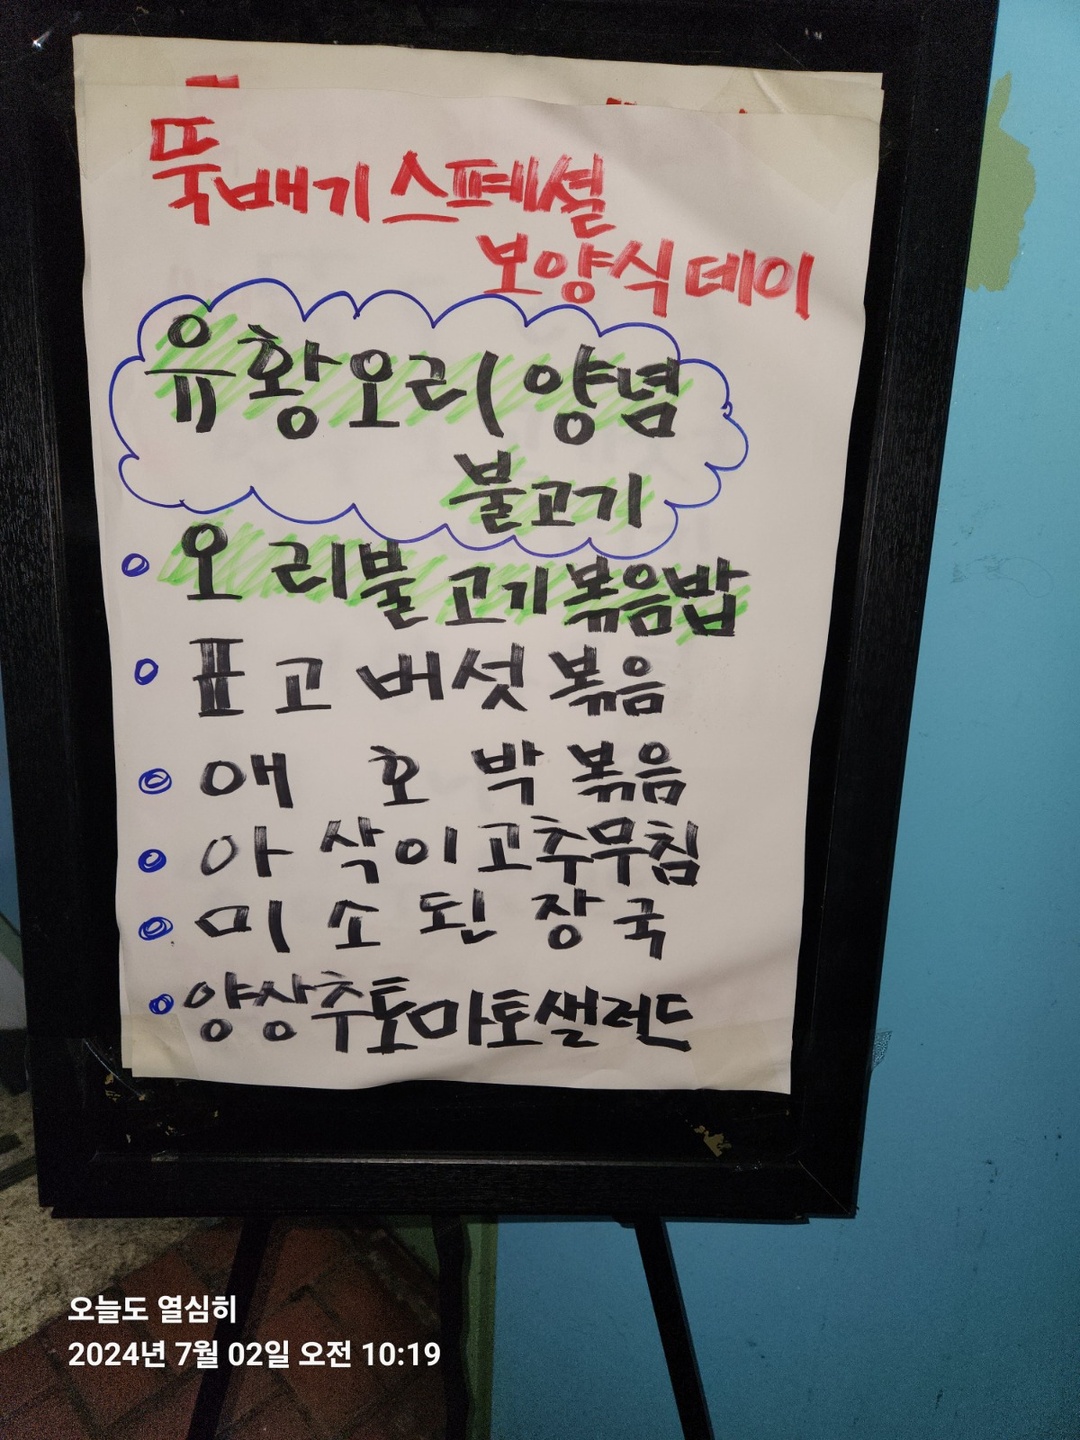 뚝배기스페셜
보양식데이
유황오리양념
불고기
오리불고기볶음밥
표고버섯볶음
애호박볶음
아삭이고추무침
미소된장국
양상추토마토샐러드
오늘도 열심히
2024년 7월 02일 오전 10:19